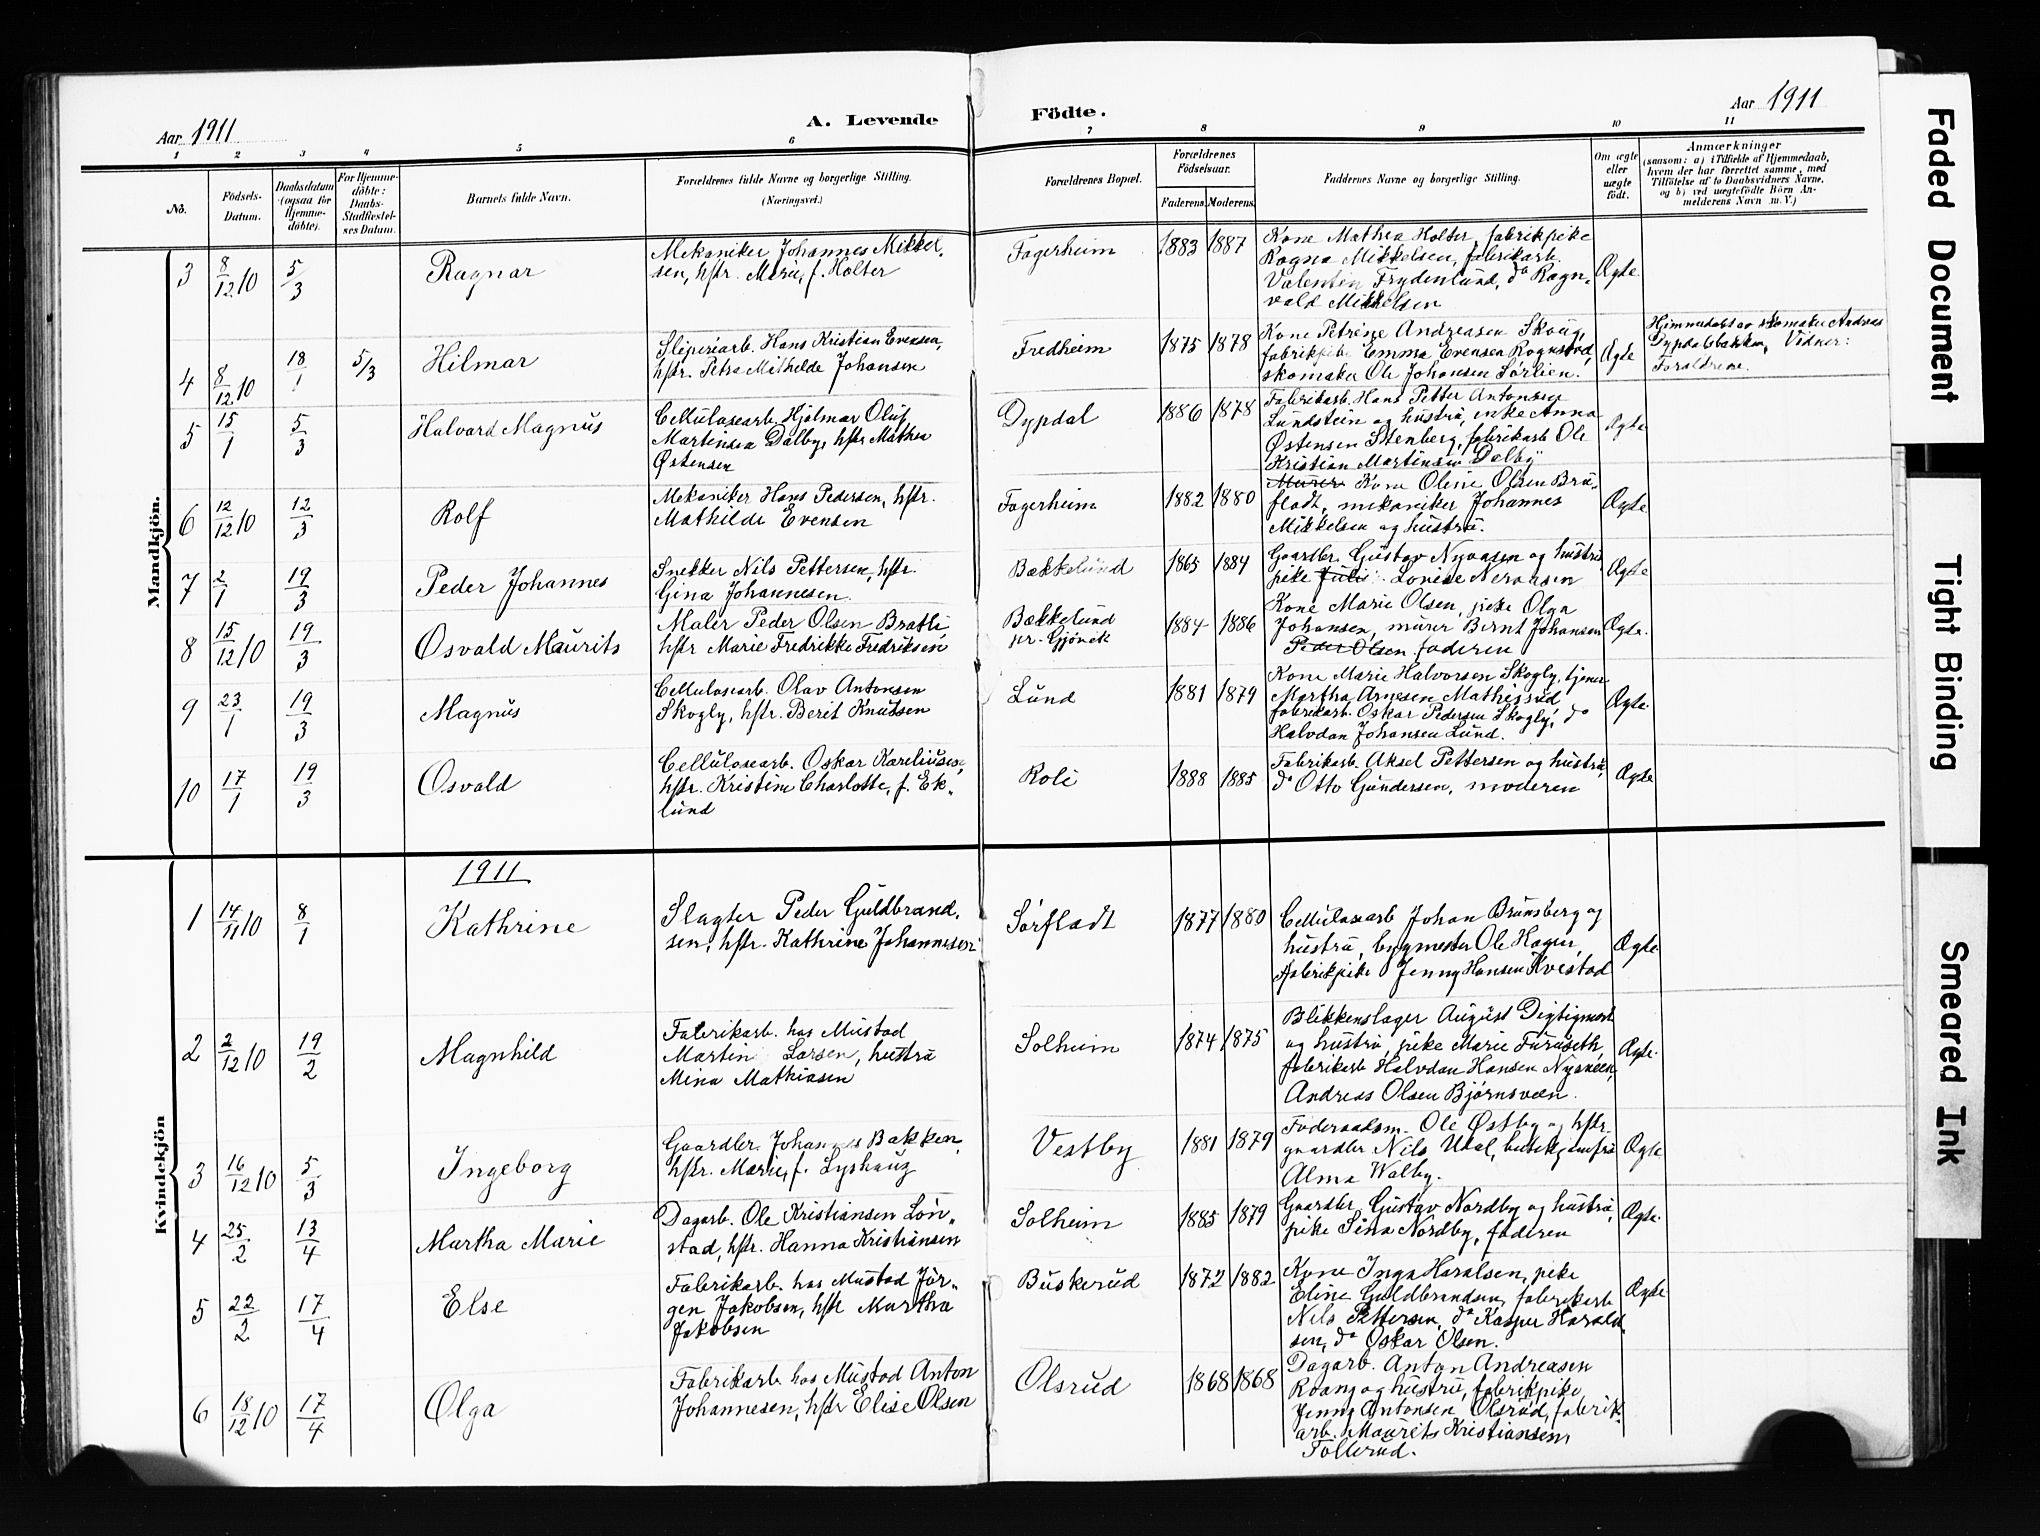 Aar 1911
A. Levende
Födte.
Aar 1911
1 2 3 4 5 6 7 8 9 10 11
No.
Födsels-Datum.
Daabsdatum (ogsaa for Hjemmedöbte).
For Hjemmedöbte: Daabs-Stadfæstelses Datum.
Barnets fulde Navn.
Forældrenes fulde Navne og borgerlige Stilling.
(Næringsvei.)
Forældrenes Bopæl.
Forældrenes Födselsaar.
Faderens Moderens
Faddernes Navne og borgerlige Stilling.
Om ægte eller uægte födt.
Anmærkninger
(saasom: a) i Tilfælde af Hjemmedaab,
hvem der har forrettet samme, med
Tilföielse af to Daabsvidners Navne.
og b) ved uægtefödte Börn Anmelderens Navn m. V.)
Mandkjön.
3 8/12 10 5/3 Ragnar
Mekaniker Johannes Mikkel-
sen, hstr. Marie, f. Holter
Fagerheim 1883 1887
Kone Mathea Holter, fabrikpike
Ragna Mikkelsen, fabrikarb.
Valentin Frydenlund, do Ragn-
vald Mikkelsen
Ægte
4 8/12 10 18/1 5/3 Hilmar
Sliperiarb. Hans Kristian Evensen,
hstr. Petra Mathilde Johansen
Fredheim 1875 1878
Kone Petrine Andreasen Skoug,
fabrikpike Emma Evensen Rognstad,
skomaker Ole Johansen Sørlien.
Ægte
Hjemmedøbt av skomaker Andreas
Dypdalsbakken, Vidner:
Forældrene.
5 15/1 5/3 Halvard Magnus
Cellulosearb. Hjalmar Oluf
Martinsen Dalby, hstr Mathea
Østensen
Dypdal 1886 1878
Fabrikarb. Hans Petter Antonsen
Lundstein og hustru, enke Anna
Østensen Stenberg, fabrikarb Ole
Kristian Martinsen Dalby
Ægte
6 12/12 10 12/3 Rolf
Mekaniker Hans Pedersen, hstr.
Mathilde Evensen
Fagerheim 1882 1880
Murer Kone Oline Olsen Brå-
fladt, mekaniker Johannes
Mikkelsen og hustru.
Ægte
7 2/1 19/3 Peder Johannes
Snekker Nils Pettersen, hstr.
Gina Johannesen.
Bækkelund 1865 1884
Gaardbr. Gustav Nyvasen og hustru
pike Julie Lovise
Ægte
8 15/12 10 19/3 Osvald Maurits
Maler Peder Olsen Bratli
hstr Marie Fredrikke Fredriksen
Bækkelund
pr. Gjøvik
1884 1886
Kone Marie Olsen, pike Olga
Johansen, murer Bernt Johansen
Peder Olsen faderen
Ægte.
9 23/1 19/3 Magnus
Cellulosearb. Olav Antonsen
Skogly, hstr. Berit Knutsen
Lund 1881 1879
Kone Marie Halvorsen Skogly, tjener
Martha Arnesen Mathisrud,
fabrikarb. Oskar Pedersen Skogly, do
Halvdan Johansen Lund.
Ægte.
10 17/1 19/3 Osvald
Cellulosearb. Oskar Kareliusen,
hstr. Kristine Charlotte, f. Ek-
lund
Roli 1888 1885
Fabrikarb. Aksel Pettersen og hustru,
do Otto Gundersen, moderen
Ægte
Kvindekjön
1911
1 14/11 10 8/1 Kathrine
Slagter Peder Guldbrand-
sen, hstr. Kathrine Johannesen
Sørfladt 1877 1880
Cellulosearb Johan Brunsberg og
hustru, bygmester Ole Hagen,
fabrikpike Jenny Hansen Kvestad
Ægte.
2 2/12 10 19/2 Magnhild
Fabrikarb. hos Mustad
Martin Larsen, hustru
Mina Mathiasen
Solheim 1874 1875
Blikkenslager August
og hustru, pike Marie Furuseth,
fabrikarb Halvdan Hansen
Andreas Olsen Bjørnsveen.
Ægte.
3 16/12 10 5/3 Ingeborg
Gaardbr. Johannes Bakken,
hstr. Marie, f. Lyshaug
Vestby 1881 1879
Føderaadsm. Ole Østby og hstr.
gaardbr Nils butikjomfru
Alma Walby.
Ægte
4 25/2 13/4 Martha Marie
Dagarb. Ole Kristiansen Løn-
stad, hstr. Hanna Kristiansen
Solheim 1885 1879
Gaardbr. Gustav Nordby og hustru,
pike Sina Nordby, faderen
Ægte.
5 22/2 17/4 Else
Fabrikarb. hos Mustad Jør-
gen Jakobsen, hstr Martha
Jakobsen
Buskerud 1872 1882
Kone Inga Haralsen, pike
Eline Guldbrandsen, fabrikarb
Nils Pettersen, do Kasper Harald-
sen, do Oskar Olsen.
Ægte
6 18/12 10 17/4 Olga
Fabrikarb. hos Mustad Anton
Johannesen, hstr Elise Olsen
Olsrud 1868 1868
Dagarb. Anton Andreasen
Roang og hustru, fabrikpike
Jenny Antonsen Olsrud, fabrik-
arb. Maurits Kristiansen
Tollerud.
Faded Document
Tight Binding
Smeared Ink